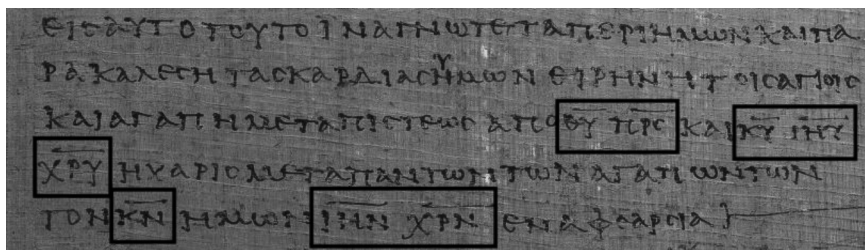 ΕΙΣΑΥΤΟΤΟΥΤΟΙΝΑΓΝΩΤΕΤΑΠΕΡΙΗΜΩΝΚΑΙΠΑ
ΡΑΚΑΛΕΣΗΤΑΣΚΑΡΔΙΑΣΗΥΜΩΝ ΕΙΡΗΝΗΤΟΙΣΑΓΙΟΙΣ
ΚΑΙΑΓΑΠΗΜΕΤΑΠΙΣΤΕΩΣ ΑΠΟΘΥ ΠΡΣ ΚΑΙΚΥ ΙΗΥ
ΧΡΥ ΗΧΑΡΙΣΜΕΤΑΠΑΝΤΩΝΤΩΝ ΑΓΑΠΩΝΤΩΝ
ΤΟΝΚΝ ΗΜΩΝ ΙΗΝ ΧΡΝ ΕΝΑΦΘΑΡΣΙΑ